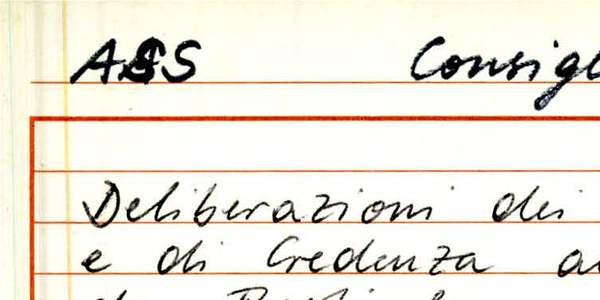 ASS Consigl
Deliberazioni dei
e di Credenza a